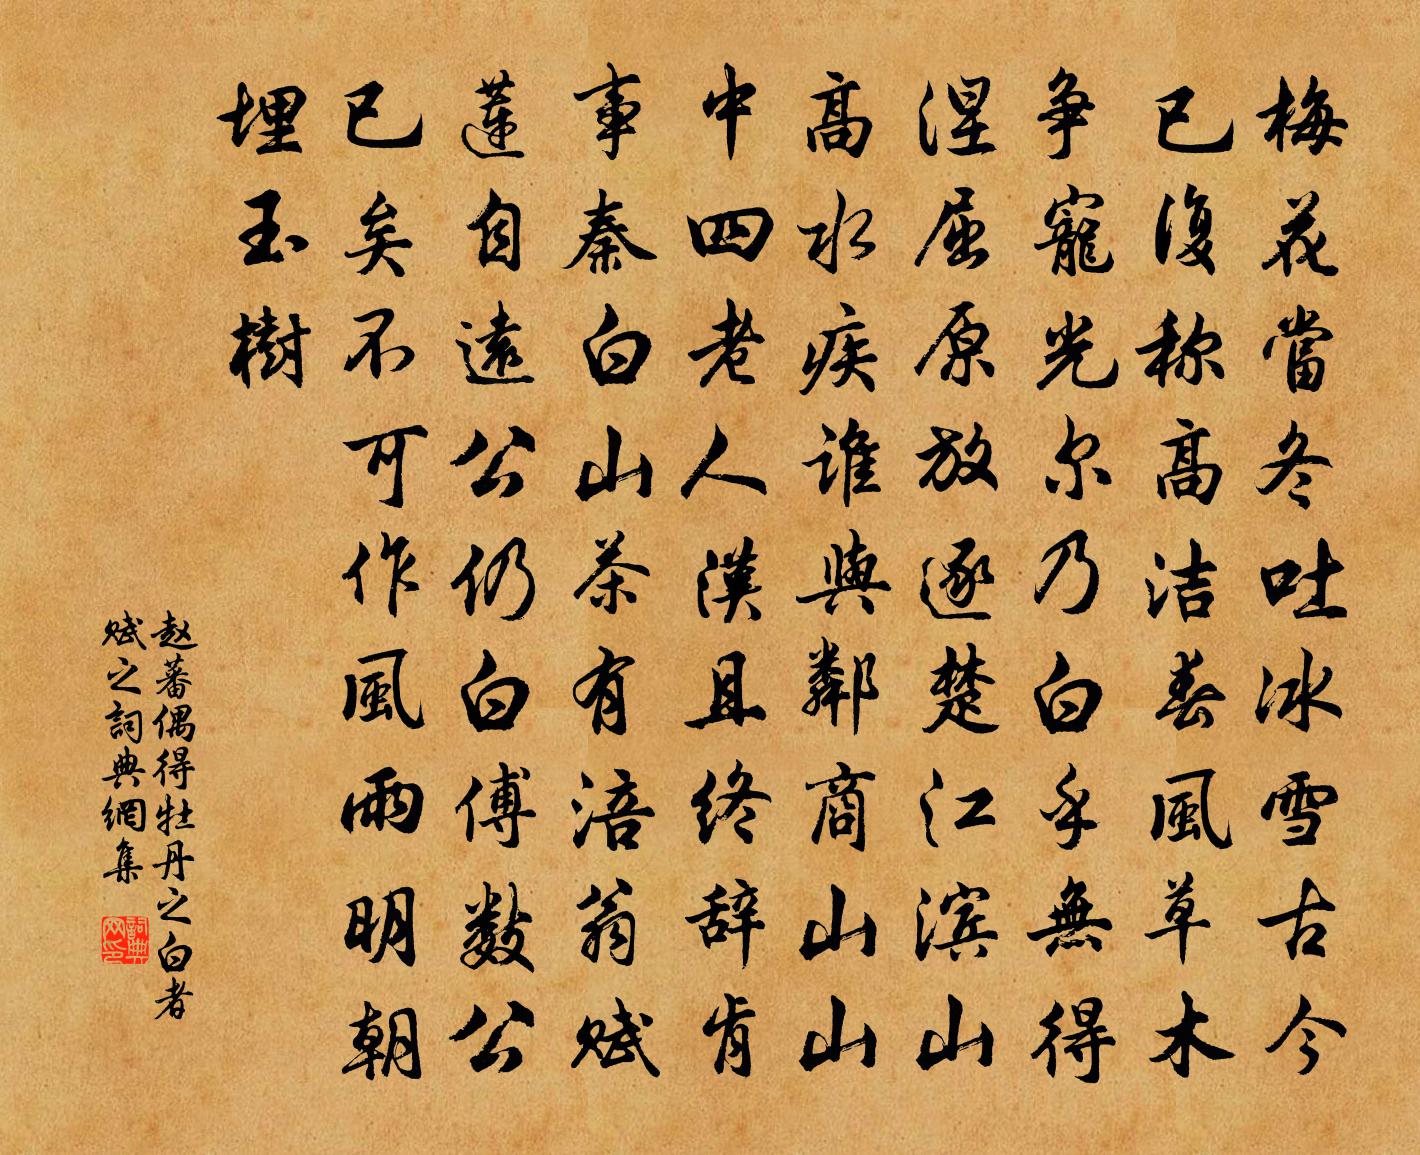 梅花當冬吐冰雪古今
已復称高洁春風草木
争寵光尔乃白乎無得
涅屈原放逐楚江滨山
高水疾谁與鄰商山山
中四老人漢且终辞肯
事秦白山茶有涪翁赋
蓮自遠公仍白傅數公
已矣不可作風雨明朝
埋玉樹
赵蕃偶得牡丹之白者
赋之詞典網集
詞典